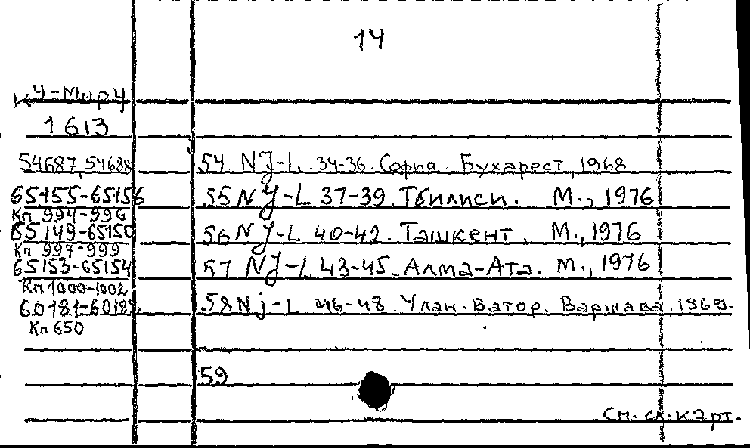 14
К4-Мир4
1613
54687, 54688 54. NJ-L 34-36. София. Бухарест, 1968
65155-65156 55 NJ-L 37-39. Тбилиси. М., 1976
Кп 994-996
65149-65150 56 NJ-L 40-42. Ташкент. М., 1976
Кп 997-999
65153-65154 57 NJ-L 43-45. Алма-Ата. М., 1976
Кп 1000-1002
58 Nj-L 46-48. Улан-Батор. Варшава. 1968.
Кп 650
59
См. сл. карт.